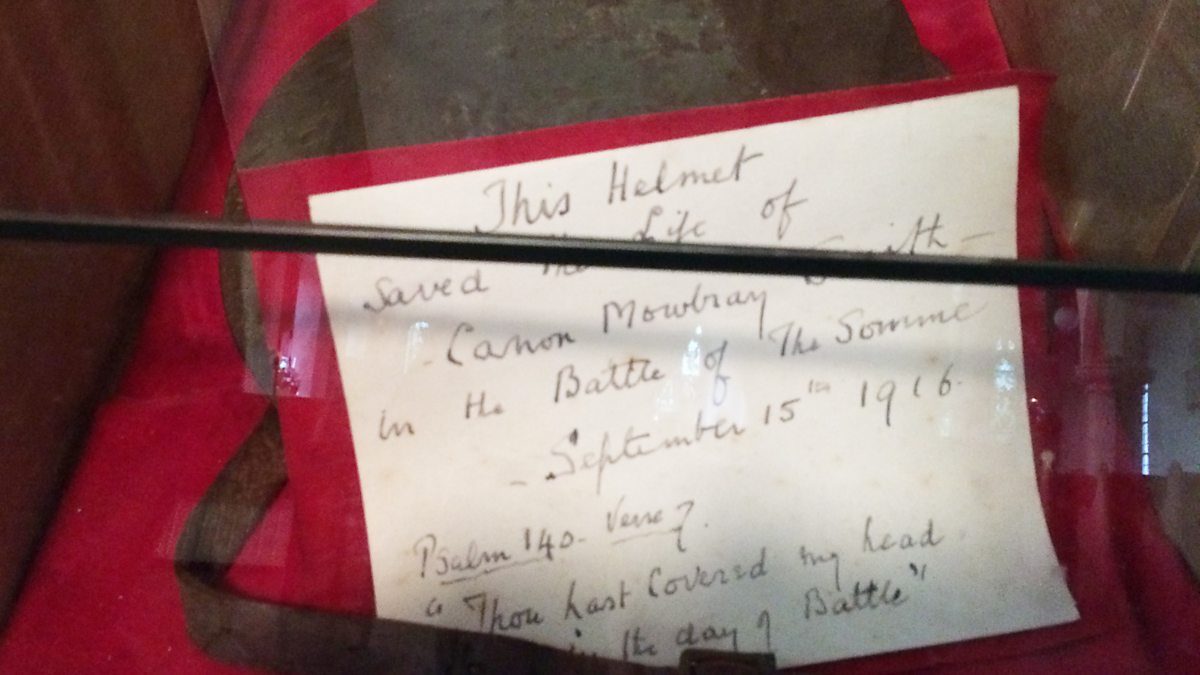 This Helmet
Saved The Life of
- Canon Mowbray Smith -
in the Battle of The Somme
- September 15th 1916.
Psalm 140. Verse 7.
"Thou hast covered my head
in the day of Battle"